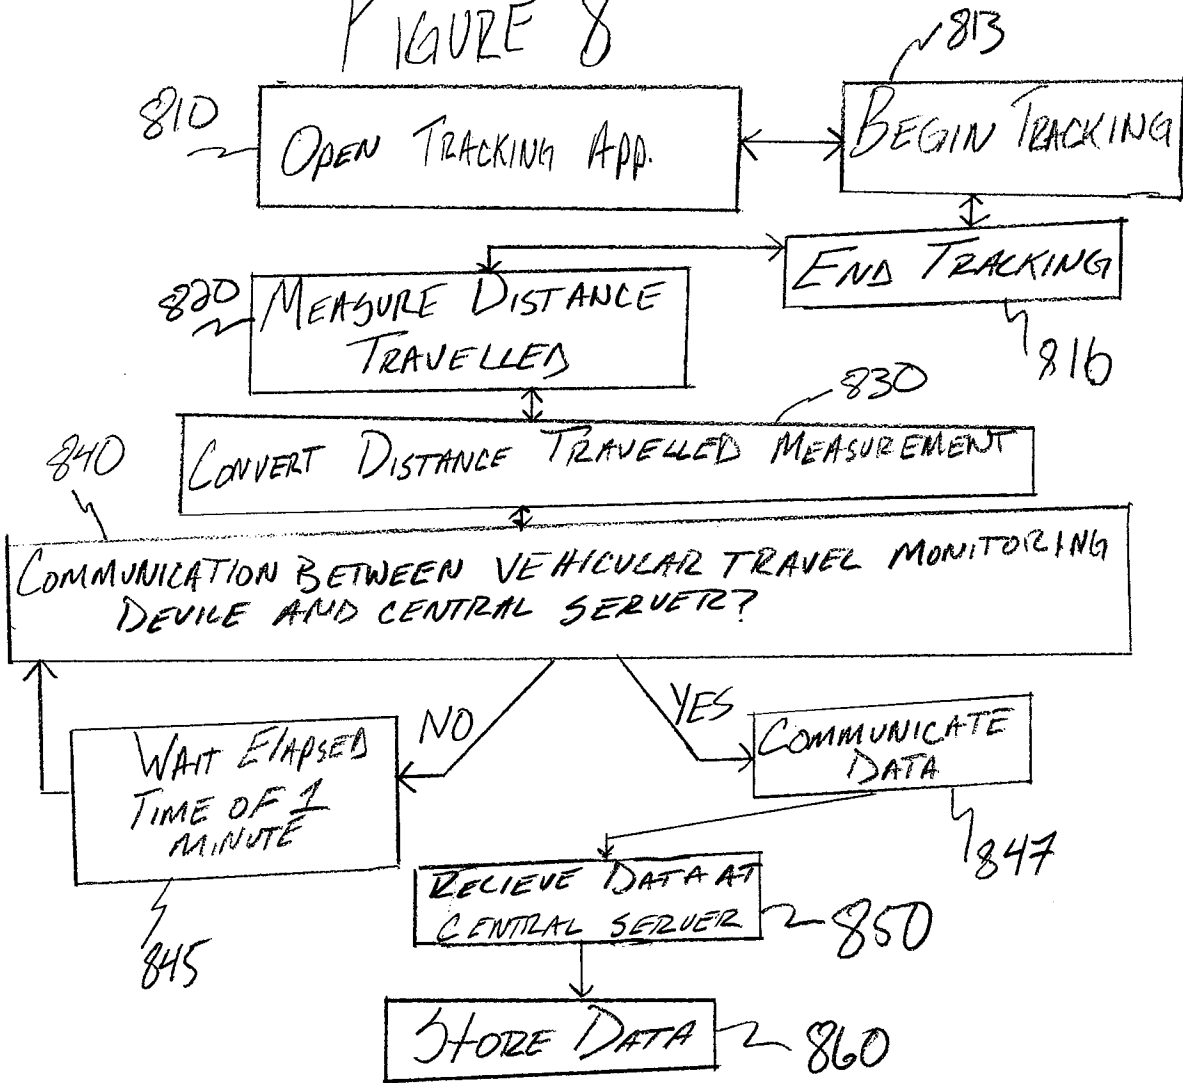 FIGURE 8
813
810
OPEN TRACKING APP.
BEGIN TRACKING
END TRACKING
816
820
MEASURE DISTANCE
TRAVELLED
830
CONVERT DISTANCE TRAVELLED MEASUREMENT
840
COMMUNICATION BETWEEN VEHICULAR TRAVEL MONITORING
DEVICE AND CENTRAL SERVER?
NO
YES
WAIT ElAPSED
TIME OF 1
MINUTE
845
COMMUNICATE
DATA
847
RECIEVE DATA AT
CENTRAL SERVER
850
STORE DATA
860